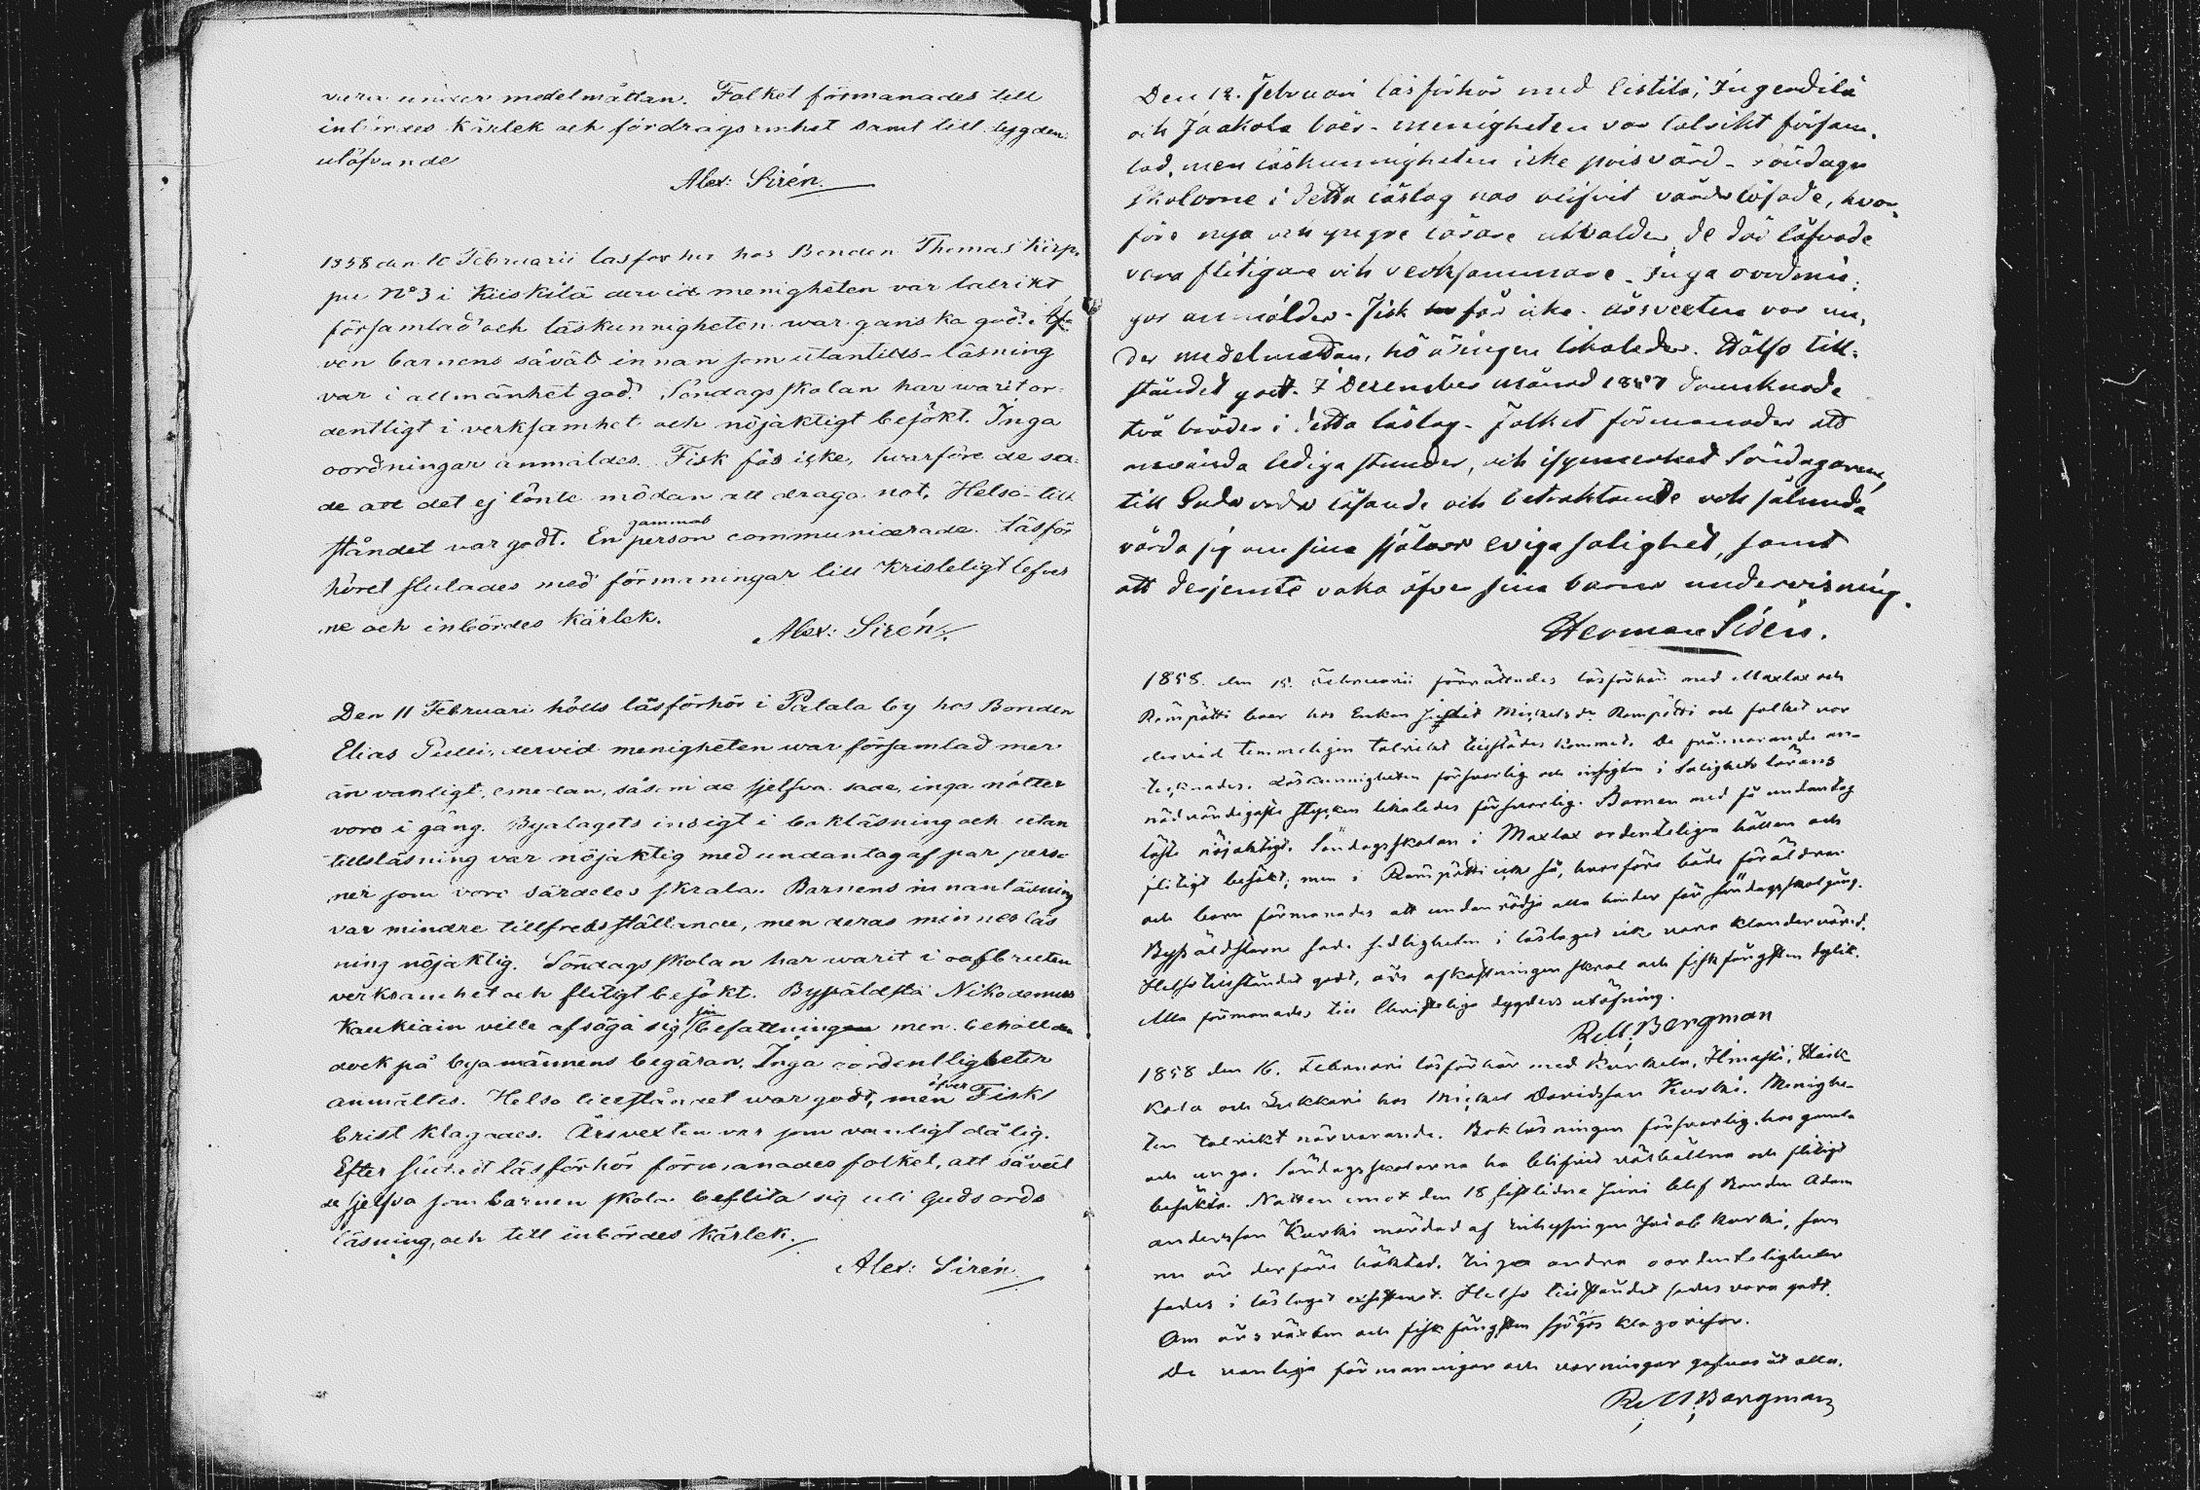 vara under medelmåttan. Folket förmanades till
inbördes kärlek och fördragsamhet samt till dygdens
utöfvande
Alex: Sirén.
1858 den 10 Februarii läsförhör hos Bonden Thomas Kirp
pu No 3 i Kiiskilä dervid menigheten var talrikt
församlad och läskunnigheten war ganska god. Äf-
ven barnens såväl innan som utantills-läsning
var i allmänhet god. Söndagsskolan har warit or-
dentligt i verksamhet och nöjaktigt besökt. Inga
oordningar anmäldes. Fisk fås icke, hvarföre de sa-
de att det ej lönte mödan att draga not. Helso-till-
ståndet var godt. En gammal person communicerade. Läsför
höret slutades med förmaningar till Kristeligt lefver
ne och inbördes kärlek.
Alex: Sirén.
Den 11 Februari hölls läsförhör i Patala by hos Bonden
Elias Pulli, dervid menigheten war församlad mer
än vanligt, emedan, såsom de sjelfva sade, inga nötter
voro i gång. Byalagets insigt i bokläsning och utan
tillsläsning var nöjaktig med undantag af par perso
ner som voro särdeles skrala. Barnens innanläsning
var mindre tillfredsställande, men deras minnesläs
ning nöjaktig. Söndagsskolan har warit i oafbruten
verksamhet och flitigt besökt. Byäldsta Nikodemus
Kaukiain ville afsäga sig sin befattning men behöll den
dock på byamännens begäran. Inga oordentligheter
anmältes. Helsotillståndet war godt, men öfver Fisk
brist klagades. Årsvexten var som vanligt dålig.
Efter slutat läsförhör förmanades folket, att såväl
de sjelfva som barnen skola beflita sig uti Guds ords
läsning, och till inbördes kärlek.
Alex: Sirén.
Den 12. Februari läsförhör med Eistilä, Ingerdilä
och Jaakola boer - menigheten var talrikt försam-
lad, men läskunnigheten icke prisvärd - söndags
skolorne i detta läslag har blifvit vårdslösade, hvar-
före nya och yngre lärare utvaldes, de der löfvade
vara flitigare och verksammare. Inga oordnin-
gar anmäldes. Fisk får icke. Årsvexten var un-
der medelmåttan, höbergningen likaledes. Hälso till-
ståndet godt. I December månad 1857 drunknade
två bröder i detta läslag. Folket förmanades att
använda lediga stunder, och isynnerhet Söndagarne,
till Guds ords läsande och betraktande och sålunda
vårda sig om sina själars eviga salighet, samt
att derjemte vaka öfver sina barns undervisning.
Herman Sirén.
1858. den 15. Februarii förrättades läsförhör med Maxlax och
Rompötti boer hos Enkan Michelsdr Rompötti och folket var
dervid temmeligen talrikt tillstädes kommet. De frånvarande an-
tecknades. Läskunnigheten försvarlig och insigten i Salighets lärans
nödvändigaste stycken likaledes försvarlig. Barnen med få undantag
läste nöjaktigt. Söndagsskolan i Maxlax ordenteligen hållen och
flitigt besökt; men i Rompötti icke så, hvarföre både föräldrar
och barn förmanades att undanrödja alla hinder för söndagsskolgång.
Byäldsterne sade sedligheten i läslaget icke vara klandervärd.
Helsotillståndet godt, års afkastningen skral och fiskfångsten dylik.
Alla förmanades till Christeliga dygders utöfning.
R. M. Bergman
1858 den 16. Februari läsförhör med Kurkela, Ilmasti, Haik
kala och Sukkari hos Michel Davidsson Kurki. Menighe-
ten talrikt närvarande. Bokläsningen försvarlig hos gamla
och unga. Söndagsskolorna ha blifvit välhållna och flitigt
besökta. Natten emot den 18 sistlidne Juni blef Bonden Adam
Andersson Kurki mördad af inhysingen Jacob Kurki, som
nu är derföre häktad. Inga andra oordenteligheter
sades i läslaget existerat. Helso tillståndet sades vara godt.
Om årsväxten och fiskfångsten klagovisor.
De vanliga förmaningar och varningar gafvos åt alla.
R. M. Bergman